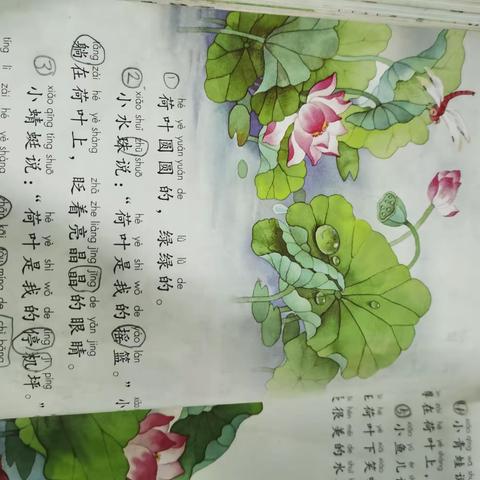 hé yè yuán yuán de lǜ lǜ de
① 荷叶圆圆的，绿绿的。
xiǎo shuǐ zhū shuō hé yè shì wǒ de yáo lán
② 小水珠说：“荷叶是我的摇篮。” 小
tǎng zài hé yè shàng zhǎ zhe liàng jīng jīng de yǎn jing
躺在荷叶上，眨着亮晶晶的眼睛。
xiǎo qīng tíng shuō hé yè shì wǒ de tíng jī píng
③ 小蜻蜓说：“荷叶是我的停机坪。”
tíng lì zài hé yè shàng kāi míng de chì bǎng
小青蛙
在荷叶上，
小鱼儿
荷叶下笑
很美的水